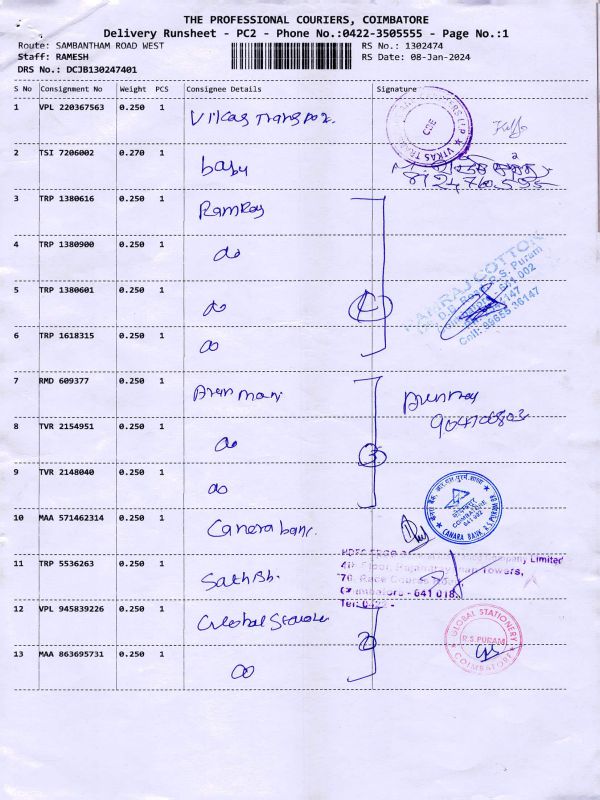 THE PROFESSIONAL COURIERS, COIMBATORE
Delivery Runsheet - PC2 - Phone No.:0422-3505555 - Page No.:1
Route: SAMBANTHAM ROAD WEST RS No.: 1302474
Staff: RAMESH RS Date: 08-Jan-2024
DRS No.: DCJB130247401
S No Consignment No Weight PCS Consignee Details Signature
1 VPL 220367563 0.250 1 Vikas Transpor.
2 TSI 7206002 0.270 1 baby
3 TRP 1380616 0.250 1 RamRaj
4 TRP 1380900 0.250 1 do
5 TRP 1380601 0.250 1 do
6 TRP 1618315 0.250 1 do
RAMRAJ COTTON
R.S. Puram
641 002
Cell: 99655 36147
7 RMD 609377 0.250 1 Arun mani
8 TVR 2154951 0.250 1 do
3
9 TVR 2148040 0.250 1 do
10 MAA 571462314 0.250 1 Canera banc.
COIMBATORE
641 002
CANARA BANK R.S PURAM
11 TRP 5536263 0.250 1 Sathish.
Company Limited
Towers,
Race Course
641 018
12 VPL 945839226 0.250 1
2
13 MAA 863695731 0.250 1 do
GLOBAL STATIONERY
R.S.PURAM
COIMBATORE